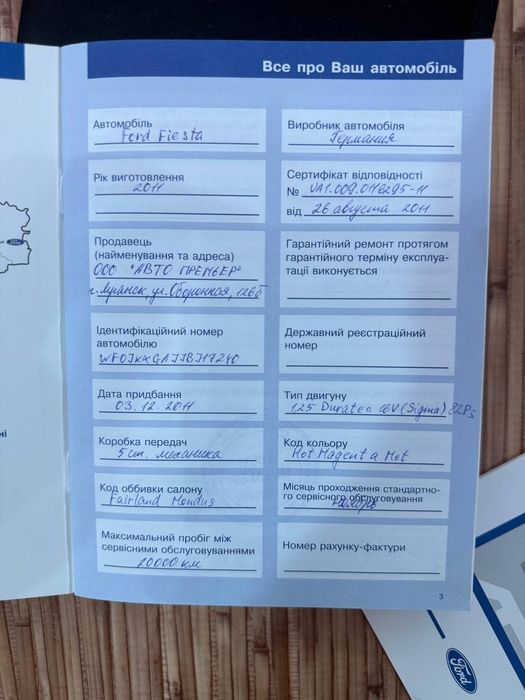 Все про Ваш автомобіль
Автомобіль
Ford Fiesta
Виробник автомобіля
Германия
Рік виготовлення
2011
Сертифікат відповідності
№ UA1.009.0116295-11
від 26 августа 2011
Продавець
(найменування та адреса)
ООО "АВТО ПРЕМЬЕР"
г. Луганск ул. Оборонная, 126б
Гарантійний ремонт протягом
гарантійного терміну експлуа-
тації виконується
Ідентифікаційний номер
автомобілю
WF0JXXGAJJBJ17240
Державний реєстраційний
номер
Дата придбання
03.12.2011
Тип двигуну
1.25 Duratec 16V (Sigma) 82Ps
Коробка передач
5 ст. механика
Код кольору
Hot Magenta Met
Код оббивки салону
Fairland
Місяць проходження стандартно-
го сервісного обслуговування
Максимальний пробіг між
сервісними обслуговуваннями
20000 км
Номер рахунку-фактури
3
ні
Ford
Ford